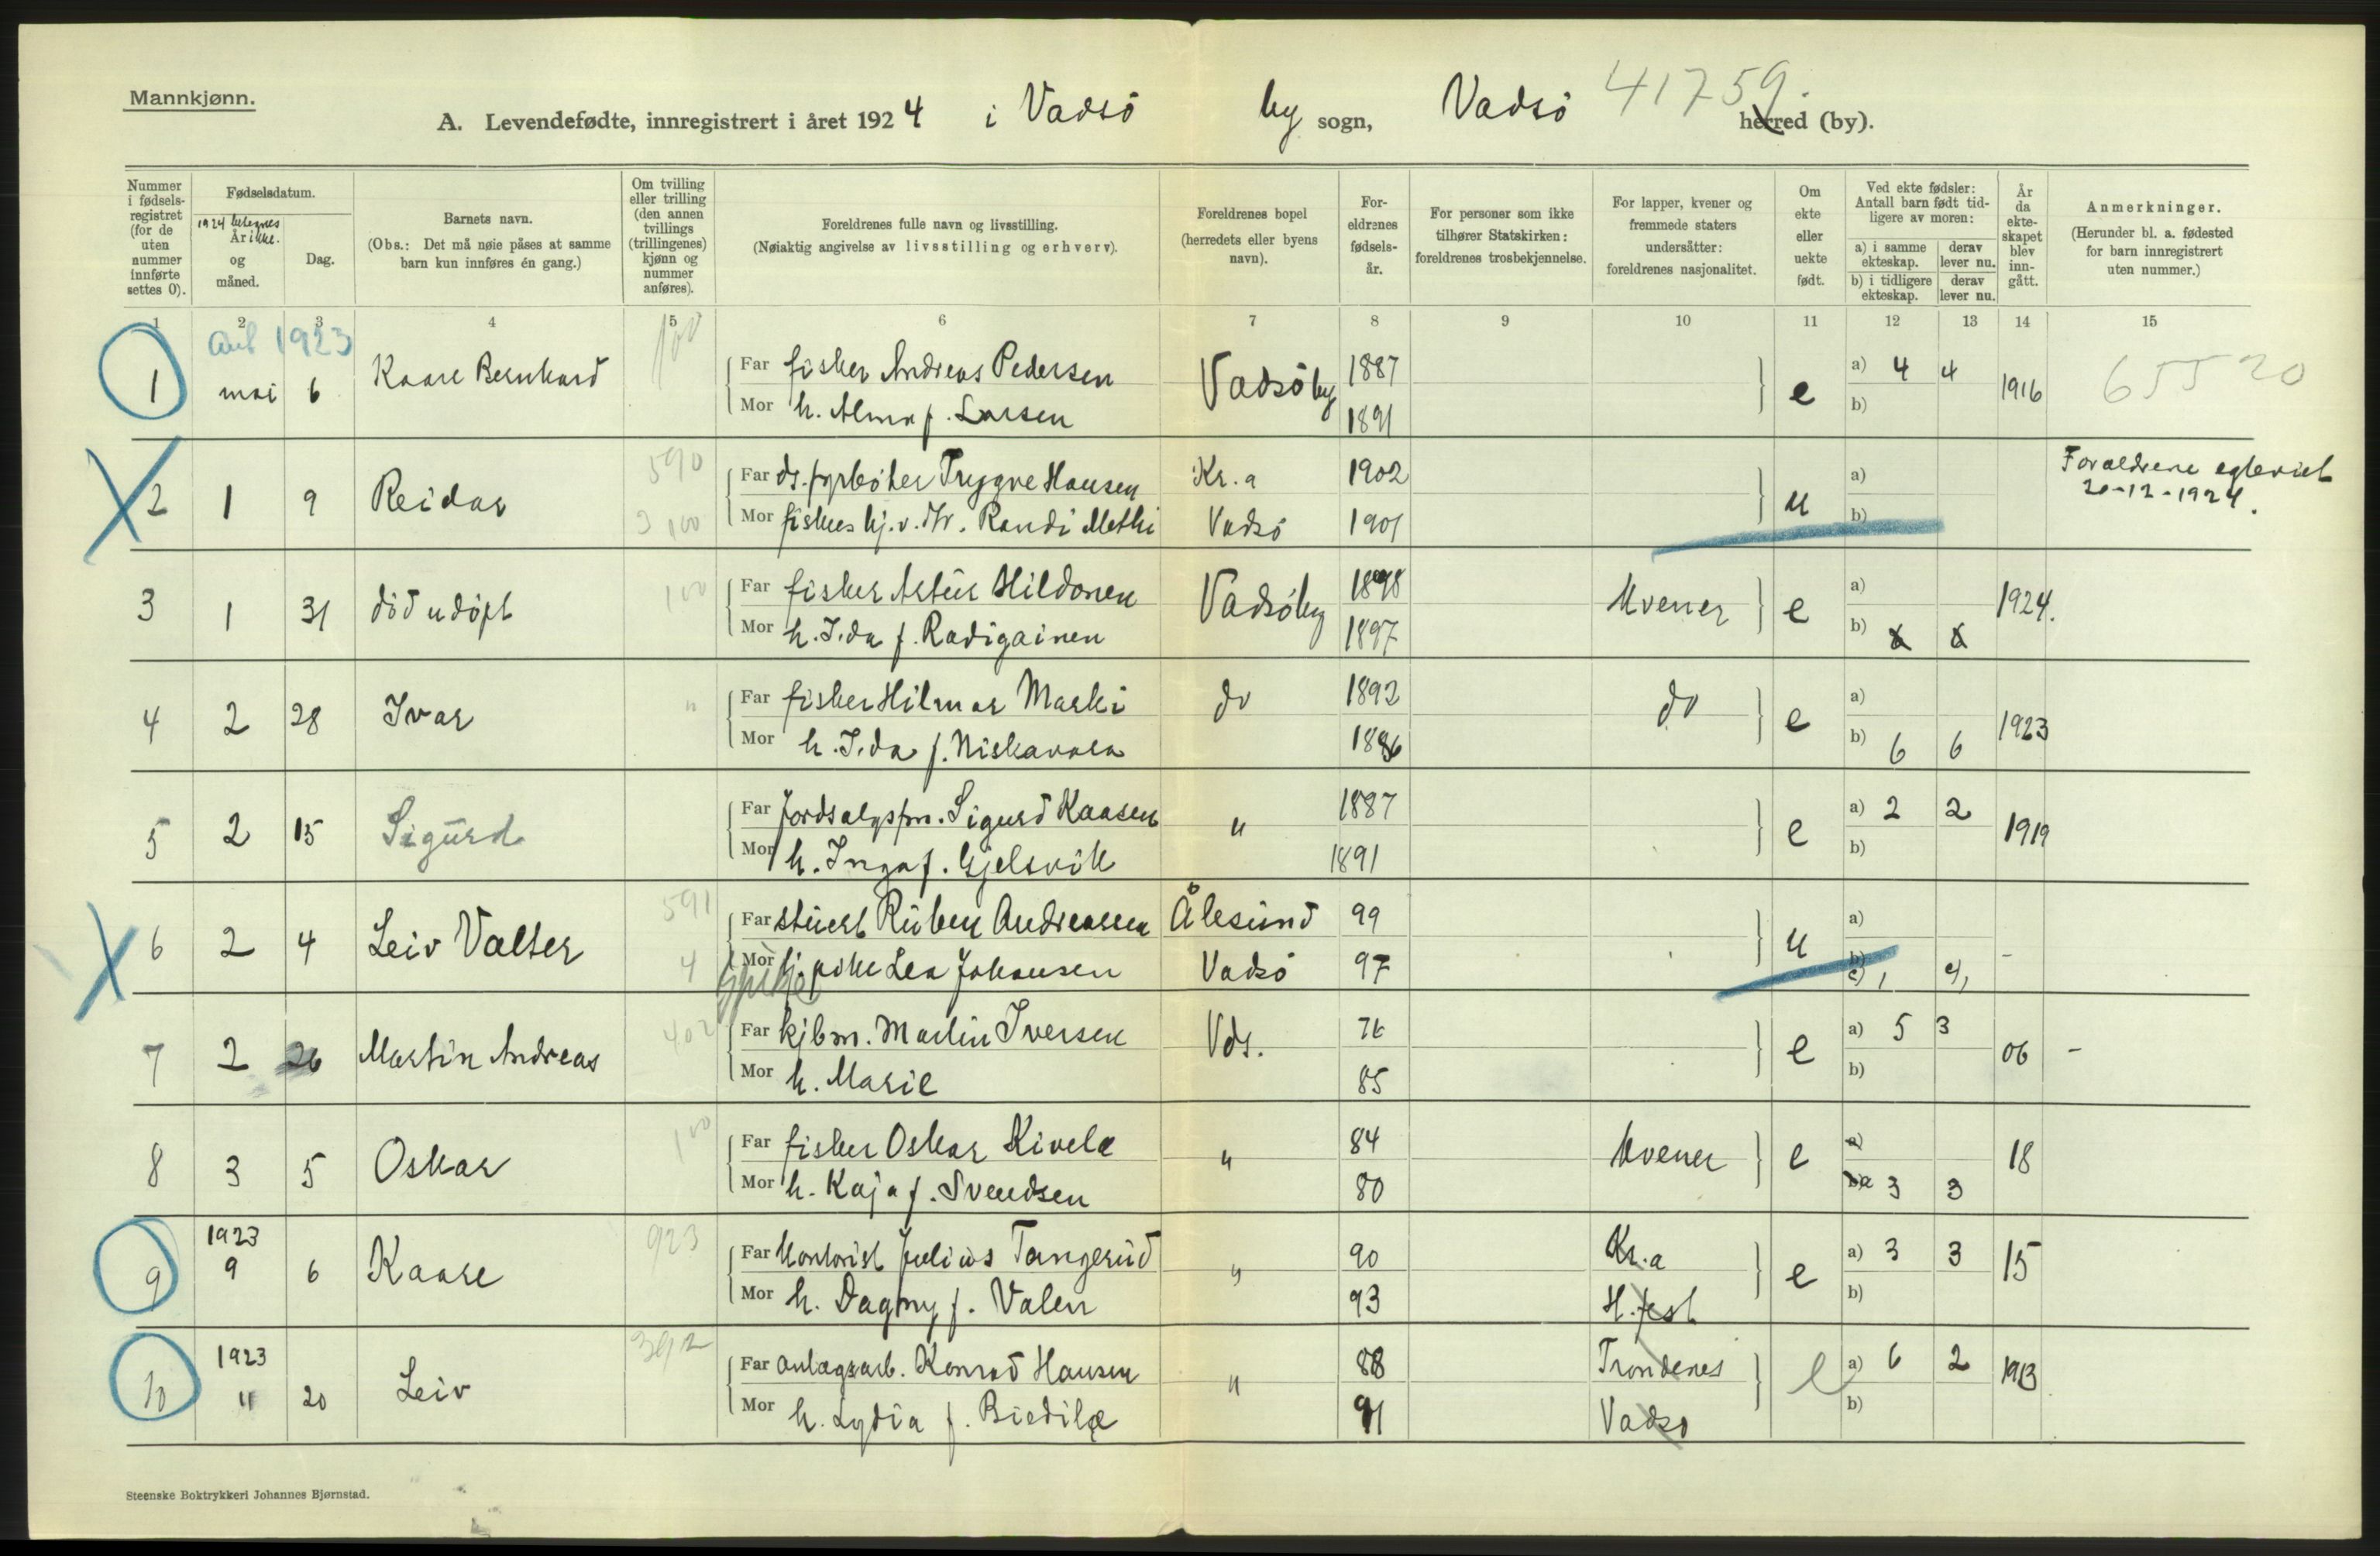 Mannkjønn.
A. Levendefødte, innregistrert i året 1924 i Vadsö by sogn, Vadsö herred (by).
41759.
Nummer i fødsels-registret (for de uten nummer innførte settes 0).
Fødselsdatum.
1924 betegnes ikke.
År og måned.
Dag.
Barnets navn.
(Obs.: Det må nøie påses at samme barn kun innføres én gang.)
Om tvilling eller trilling (den annen tvillings (trillingenes) kjønn og nummer anføres).
Foreldrenes fulle navn og livsstilling.
(Nøiaktig angivelse av livsstilling og erhverv).
Foreldrenes bopel (herredets eller byens navn).
For-eldrenes fødsels-år.
For personer som ikke tilhører Statskirken: foreldrenes trosbekjennelse.
For lapper, kvener og fremmede staters undersåtter: foreldrenes nasjonalitet.
Om ekte eller uekte født.
Ved ekte fødsler: Antall barn født tid-ligere av moren:
a) i samme ekteskap.
derav lever nu.
b) i tidligere ekteskap.
derav lever nu.
År da ekte-skapet blev inn-gått.
Anmerkninger.
(Herunder bl. a. fødested for barn innregistrert uten nummer.)
1 2 3 4 5 6 7 8 9 10 11 12 13 14 15
Aut 1923 100
1 mai 6 Kaare Bernhard Far fisker Andreas Pedersen Vadsö by 1887 e a) 4 4 1916 65520
Mor h. Alma f. Larsen 1891 b)
2 1 9 Reidar 590 Far ds. fyrböter Trygve Hansen Kr.a 1902 u a) Foraeldrene egteviet 20-12-1924.
3 100 Mor fiskes hj. v. Hr. Randi Methi Vadsö 1901 b)
3 1 31 död udöpt 100 Far fisker Artur Hildonen Vadsöby 1898 Kvener e a) 1924.
Mor h. Ida f. Radigainen 1897 b)
4 2 28 Ivar " Far fisker Hilmar Marki do 1892 do e a) 1923
Mor h. Ida f. Niskavara 1886 b) 6 6
5 2 15 Sigurd Far Jordsalgsfm. Sigurd Kaasen " 1887 e a) 2 2 1919
Mor h. Inga f. Gjelsvik 1891 b)
6 2 4 Leiv Valter 591 Far stuert Ruben Andreassen Ålesund 99 u a)
4 Mor tj.pike Lea Johansen Vadsö 97 b) c) 1 1 -
7 2 26 Martin Andreas 402 Far kjbm. Martin Iversen Vds. 76 e a) 5 3 06 -
Mor h. Marie 85 b)
8 3 5 Oskar 100 Far fisker Oskar Kivelæ " 84 Kvener e a) 18
Mor h. Kaja f. Svendsen 80 a 3 3
1923
9 9 6 Kaare 923 Far Kontorist Julius Tangerud " 90 Kr.a e a) 3 3 15
Mor h. Dagny f. Valen 93 H.fest b)
1923 392
10 11 20 Leiv Far anlægsarb. Konrad Hansen " 88 Trondenes e a) 6 2 1913
Mor h. Lydia f. Biedilæ 91 Vadsö b)
Steenske Boktrykkeri Johannes Bjørnstad.